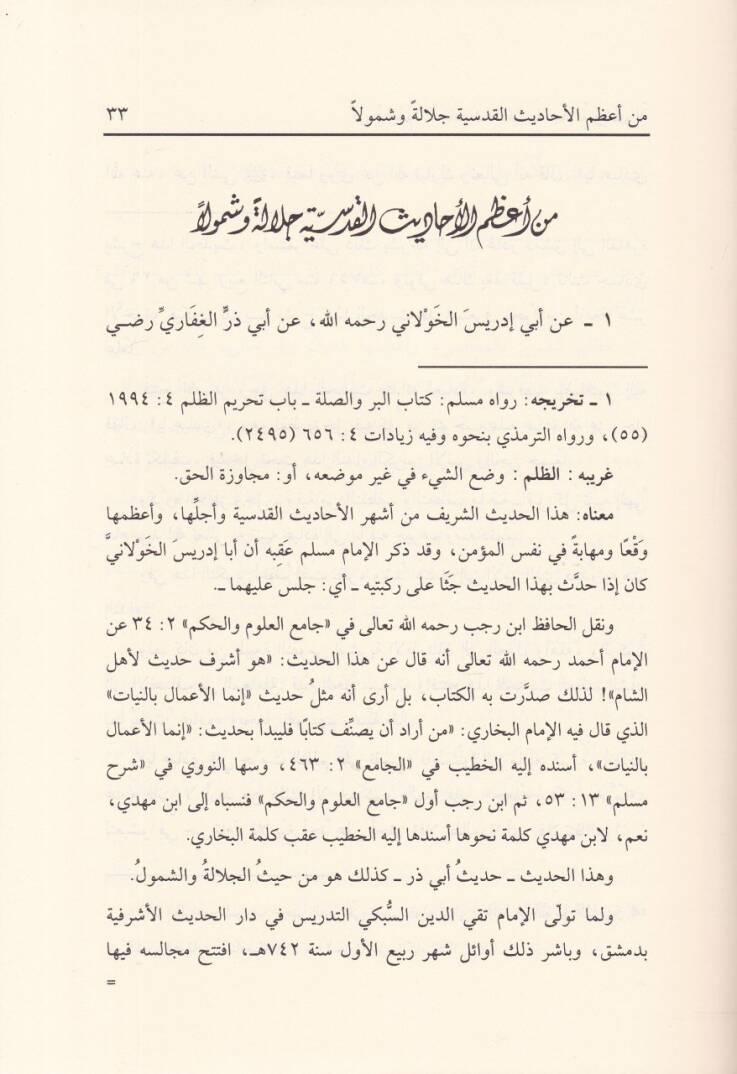 من أعظم الأحاديث القدسية جلالةً وشمولاً ٣٣
من أعظم الأحاديث القدسيّة جلالةً وشمولاً
١ ـ عن أبي إدريسَ الخَوْلاني رحمه الله، عن أبي ذرٍّ الغِفَاريِّ رضي
١ ـ تخريجه: رواه مسلم: كتاب البر والصلة ـ باب تحريم الظلم ٤: ١٩٩٤
(٥٥)، ورواه الترمذي بنحوه وفيه زيادات ٤: ٦٥٦ (٢٤٩٥).
غريبه: الظلم: وضع الشيء في غير موضعه، أو: مجاوزة الحق.
معناه: هذا الحديث الشريف من أشهر الأحاديث القدسية وأجلِّها، وأعظمها
وَقْعًا ومهابةً في نفس المؤمن، وقد ذكر الإمام مسلم عَقِبه أن أبا إدريسَ الخَوْلانيَّ
كان إذا حدَّث بهذا الحديث جَثَا على ركبتيه ـ أي: جلس عليهما ـ.
ونقل الحافظ ابن رجب رحمه الله تعالى في «جامع العلوم والحكم» ٢: ٣٤ عن
الإمام أحمد رحمه الله تعالى أنه قال عن هذا الحديث: «هو أشرف حديث لأهل
الشام»! لذلك صدَّرت به الكتاب، بل أرى أنه مثلُ حديث «إنما الأعمال بالنيات»
الذي قال فيه الإمام البخاري: «من أراد أن يصنِّف كتابًا فليبدأ بحديث: «إنما الأعمال
بالنيات»، أسنده إليه الخطيب في «الجامع» ٢: ٤٦٣، وسها النووي في «شرح
مسلم» ١٣: ٥٣، ثم ابن رجب أول «جامع العلوم والحكم» فنسباه إلى ابن مهدي،
نعم، لابن مهدي كلمة نحوها أسندها إليه الخطيب عقب كلمة البخاري.
وهذا الحديث ـ حديثُ أبي ذر ـ كذلك هو من حيثُ الجلالةُ والشمولُ.
ولما تولّى الإمام تقي الدين السُّبكي التدريس في دار الحديث الأشرفية
بدمشق، وباشر ذلك أوائل شهر ربيع الأول سنة ٧٤٢هـ، افتتح مجالسه فيها
=